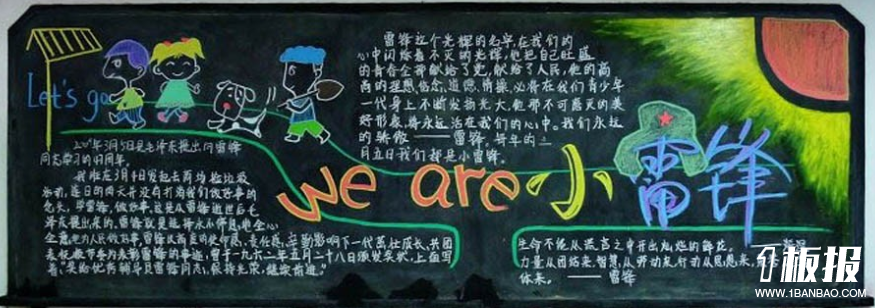 Let's go
雷锋这个光辉的名字,在我们的
心中闪烁着不灭的光辉,他把自己旺盛
的青春全部献给了党,献给了人民,他的高
的理想信念、道德、情操,必将在我们青少年
一代身上不断发扬光大,他那不可磨灭的美
好形象,将永远活在我们的心中。我们永远
的骄傲——雷锋。每年的三
月五日我们都是小雷锋。
年3月5日是毛泽东提出向雷锋
同志学习的 周年。
我班在3月4日发起去两
活动,连日的雨天并没有打消我们做好事的
念头,学雷锋,做好事,这是从雷锋逝世后毛
泽东提出来的,雷锋
全意 为人民做好事,雷锋 影响下一代茁壮成长,共团
表抚顺市委为表彰雷锋的事迹,曾于一九六二年五月二十八日颁发奖状,上面写
着:“奖给优秀辅导员雷锋同志,保持光荣,继续前进。”
we are 小雷锋
生命不能从谎言之中开出灿烂的鲜花。
力量从团结来,智慧从劳动来,行动从思想来,
体来。——雷锋
板报
WWW.1BANBAO.COM